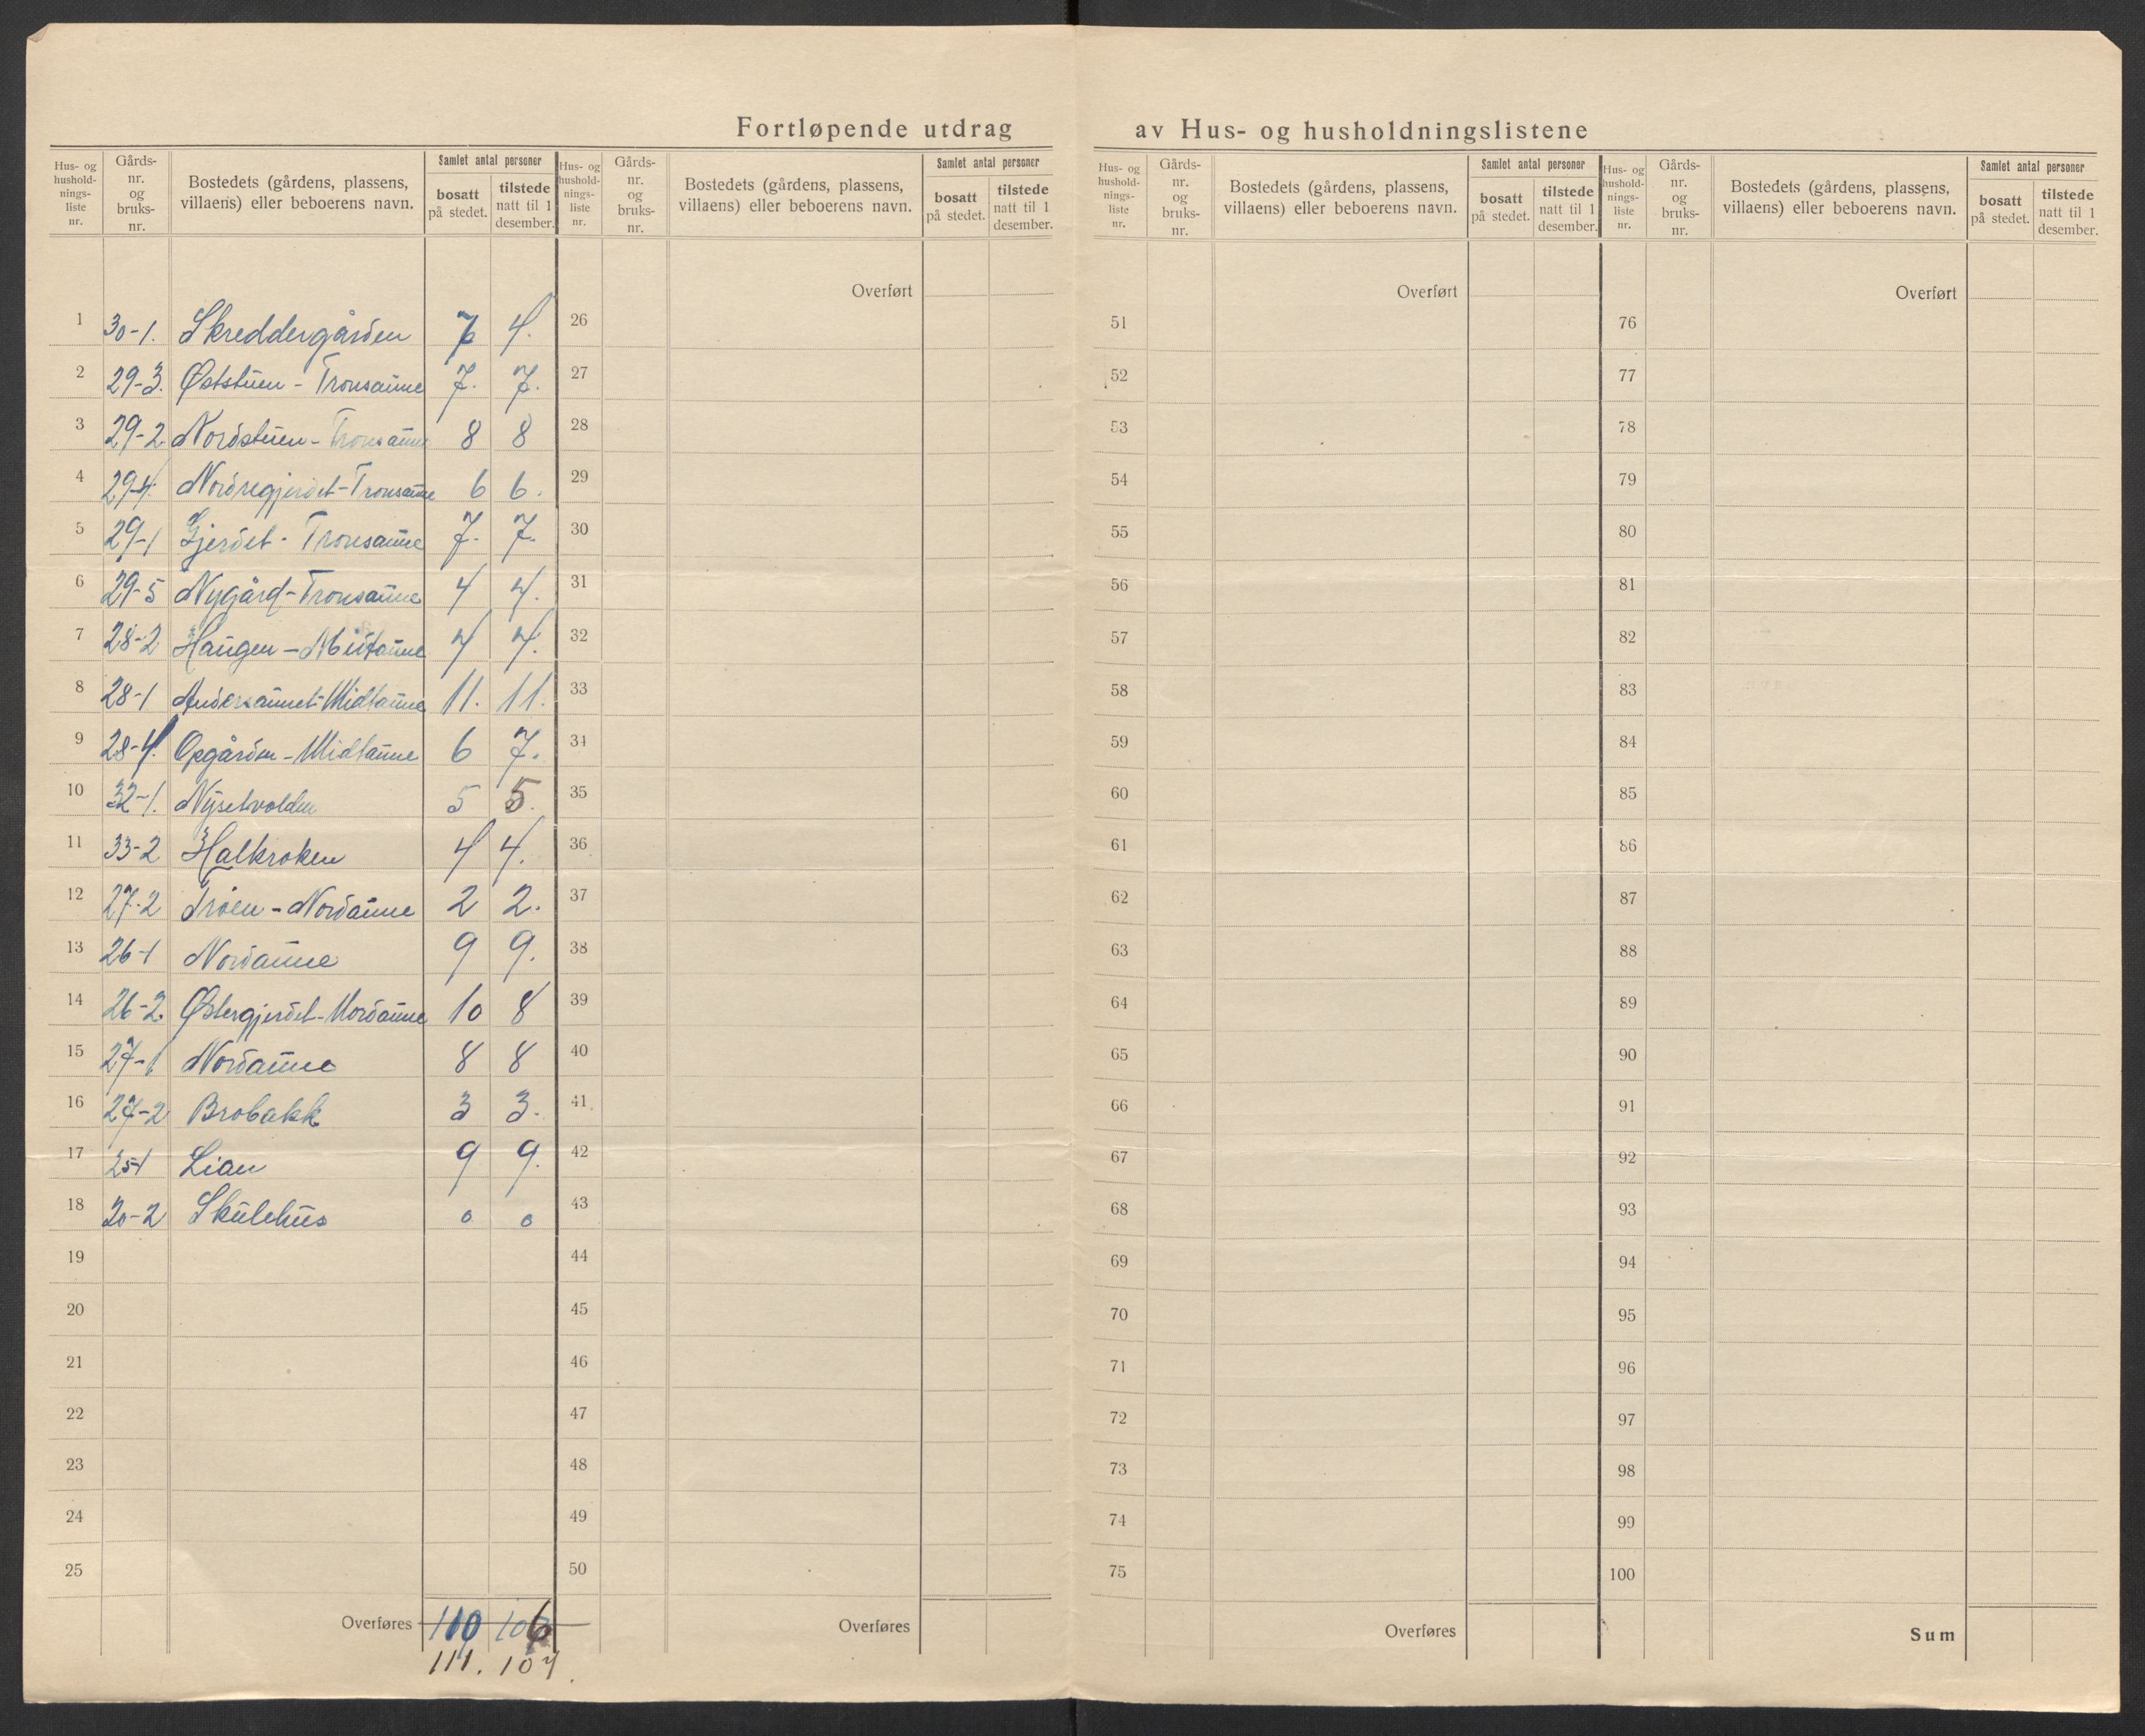 Fortløpende utdrag av Hus- og husholdningslistene
Hus- og hushold-nings-liste nr. Gårds-nr. og bruks-nr. Bostedets (gårdens, plassens, villaens) eller beboerens navn. Samlet antal personer bosatt på stedet. tilstede natt til 1 desember.
1 30-1. Skreddergården 7 4.
2 29-3. Øststuen - Tronsaune 7. 7.
3 29-2 Nordstuen - Tronsaune 8 8
4 29-4. Nordregjerdet - Tronsaune 6 6.
5 29-1 Gjerdet - Tronsaune 7. 7.
6 29-5 Nygård - Tronsaune 4 4.
7 28-2 Haugen - Midtaune 4 4.
8 28-1 Andersaunet - Midtaune 11. 11.
9 28-4. Opgården - Midtaune 6 7.
10 32-1. Nysetvolden 5 5.
11 33-2 Halkroken 4 4.
12 27-2 Trøen - Nordaune 2 2.
13 26-1 Nordaune 9 9.
14 26-2. Østergjerdet - Nordaune 10 8
15 27-1 Nordaune 8 8
16 27-2 Brobakk 3 3.
17 25-1 Lian 9 9.
18 30-2 Skulehus 0 0
19
20
21
22
23
24
25
Overføres 110 106
111. 107.
Hus- og hushold-nings-liste nr. Gårds-nr. og bruks-nr. Bostedets (gårdens, plassens, villaens) eller beboerens navn. Samlet antal personer bosatt på stedet. tilstede natt til 1 desember.
Overført
26
27
28
29
30
31
32
33
34
35
36
37
38
39
40
41
42
43
44
45
46
47
48
49
50
Overføres
Hus- og hushold-nings-liste nr. Gårds-nr. og bruks-nr. Bostedets (gårdens, plassens, villaens) eller beboerens navn. Samlet antal personer bosatt på stedet. tilstede natt til 1 desember.
Overført
51
52
53
54
55
56
57
58
59
60
61
62
63
64
65
66
67
68
69
70
71
72
73
74
75
Overføres
Hus- og hushold-nings-liste nr. Gårds-nr. og bruks-nr. Bostedets (gårdens, plassens, villaens) eller beboerens navn. Samlet antal personer bosatt på stedet. tilstede natt til 1 desember.
Overført
76
77
78
79
80
81
82
83
84
85
86
87
88
89
90
91
92
93
94
95
96
97
98
99
100
Sum